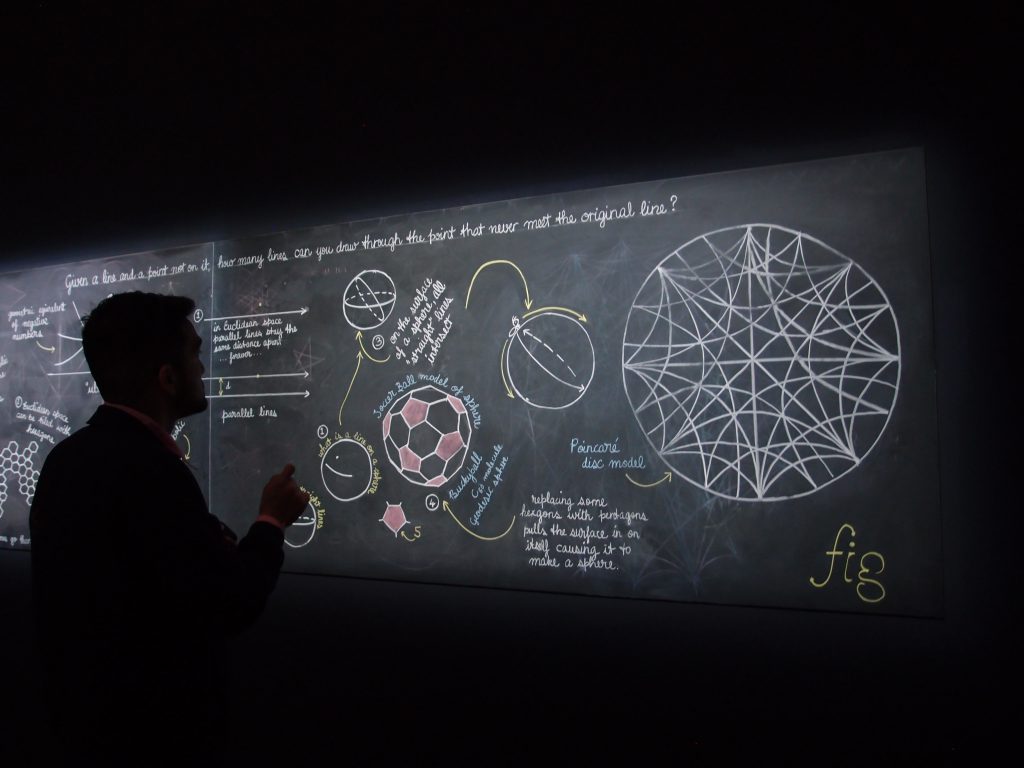 Given a line and a point not on it, how many lines can you draw through the point that never meet the original line?
geometric equivalent
of negative
numbers
1
in Euclidean space
parallel lines stay the
same distance apart
... forever...
parallel lines
1 Euclidean space
can be tiled with
hexagons
2
what is a line on a sphere
lines
3
on the surface
of a sphere, all
straight lines
intersect
Soccer Ball model of sphere
5
4
Buckyball
C60 molecule
Geodesic sphere
replacing some
hexgons with pentagons
pulls the surface in on
itself causing it to
make a sphere.
Poincaré
disc model
fig